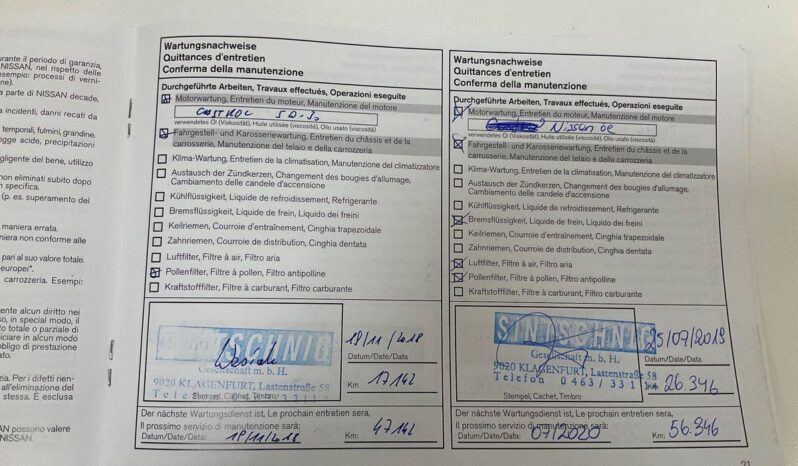 urante il periodo di garanzia,
NISSAN, nel rispetto delle
esempio: processi di verni-
ne).
a parte di NISSAN decade,
a incidenti, danni recati da
temporali, fulmini, grandine.
gge acide, precipitazioni
gligente del bene, utilizzo
non eliminati subito dopo
n specifica.
(p. es. superamento del
maniera errata.
niera non conforme alle
pari al suo valore totale.
europei".
carrozzeria. Esempi:
ente alcun diritto nei
so, in special modo, il
to totale o parziale di
nciare in alcun modo
bbligo di prestazione
ato.
zia. Per i difetti rien-
all'eliminazione del
stessa. È esclusa
AN possono valere
NISSAN.
Wartungsnachweise
Quittances d'entretien
Conferma della manutenzione
Durchgeführte Arbeiten, Travaux effectués, Operazioni eseguite
Motorwartung, Entretien du moteur, Manutenzione del motore
CASTROL 5D-30
verwendetes Öl (Viskosität), Huile utilisée (viscosité), Olio usato (viscosità)
Fahrgestell- und Karosseriewartung, Entretien du châssis et de la
carrosserie, Manutenzione del telaio e della carrozzeria
Klima-Wartung, Entretien de la climatisation, Manutenzione del climatizzatore
Austausch der Zündkerzen, Changement des bougies d'allumage,
Cambiamento delle candele d'accensione
Kühlflüssigkeit, Liquide de refroidissement, Refrigerante
Bremsflüssigkeit, Liquide de frein, Liquido dei freini
Keilriemen, Courroie d'entraînement, Cinghia trapezoidale
Zahnriemen, Courroie de distribution, Cinghia dentata
Luftfilter, Filtre à air, Filtro aria
Pollenfilter, Filtre à pollen, Filtro antipolline
Kraftstofffilter, Filtre à carburant, Filtro carburante
SINTSCHNIG
Gesellschaft m. b. H.
9020 KLAGENFURT, Lastenstraße 58
Stempel, Cachet, Timbro
19/11/2018
Datum/Date/Data
Km 17142
Der nächste Wartungsdienst ist, Le prochain entretien sera,
Il prossimo servizio di manutenzione sarà:
Datum/Date/Data: 19/11/2018 Km: 47142
Wartungsnachweise
Quittances d'entretien
Conferma della manutenzione
Durchgeführte Arbeiten, Travaux effectués, Operazioni eseguite
Motorwartung, Entretien du moteur, Manutenzione del motore
Nissan öl
verwendetes Öl (Viskosität), Huile utilisée (viscosité), Olio usato (viscosità)
Fahrgestell- und Karosseriewartung, Entretien du châssis et de la
carrosserie, Manutenzione del telaio e della carrozzeria
Klima-Wartung, Entretien de la climatisation, Manutenzione del climatizzatore
Austausch der Zündkerzen, Changement des bougies d'allumage,
Cambiamento delle candele d'accensione
Kühlflüssigkeit, Liquide de refroidissement, Refrigerante
Bremsflüssigkeit, Liquide de frein, Liquido dei freini
Keilriemen, Courroie d'entraînement, Cinghia trapezoidale
Zahnriemen, Courroie de distribution, Cinghia dentata
Luftfilter, Filtre à air, Filtro aria
Pollenfilter, Filtre à pollen, Filtro antipolline
Kraftstofffilter, Filtre à carburant, Filtro carburante
SINTSCHNIG
Gesellschaft m. b. H.
9020 KLAGENFURT, Lastenstraße 58
Telefon 0463/331
Stempel, Cachet, Timbro
25/07/2019
Datum/Date/Data
Km 26.346
Der nächste Wartungsdienst ist, Le prochain entretien sera,
Il prossimo servizio di manutenzione sarà:
Datum/Date/Data: 07/2020 Km: 56.346
21